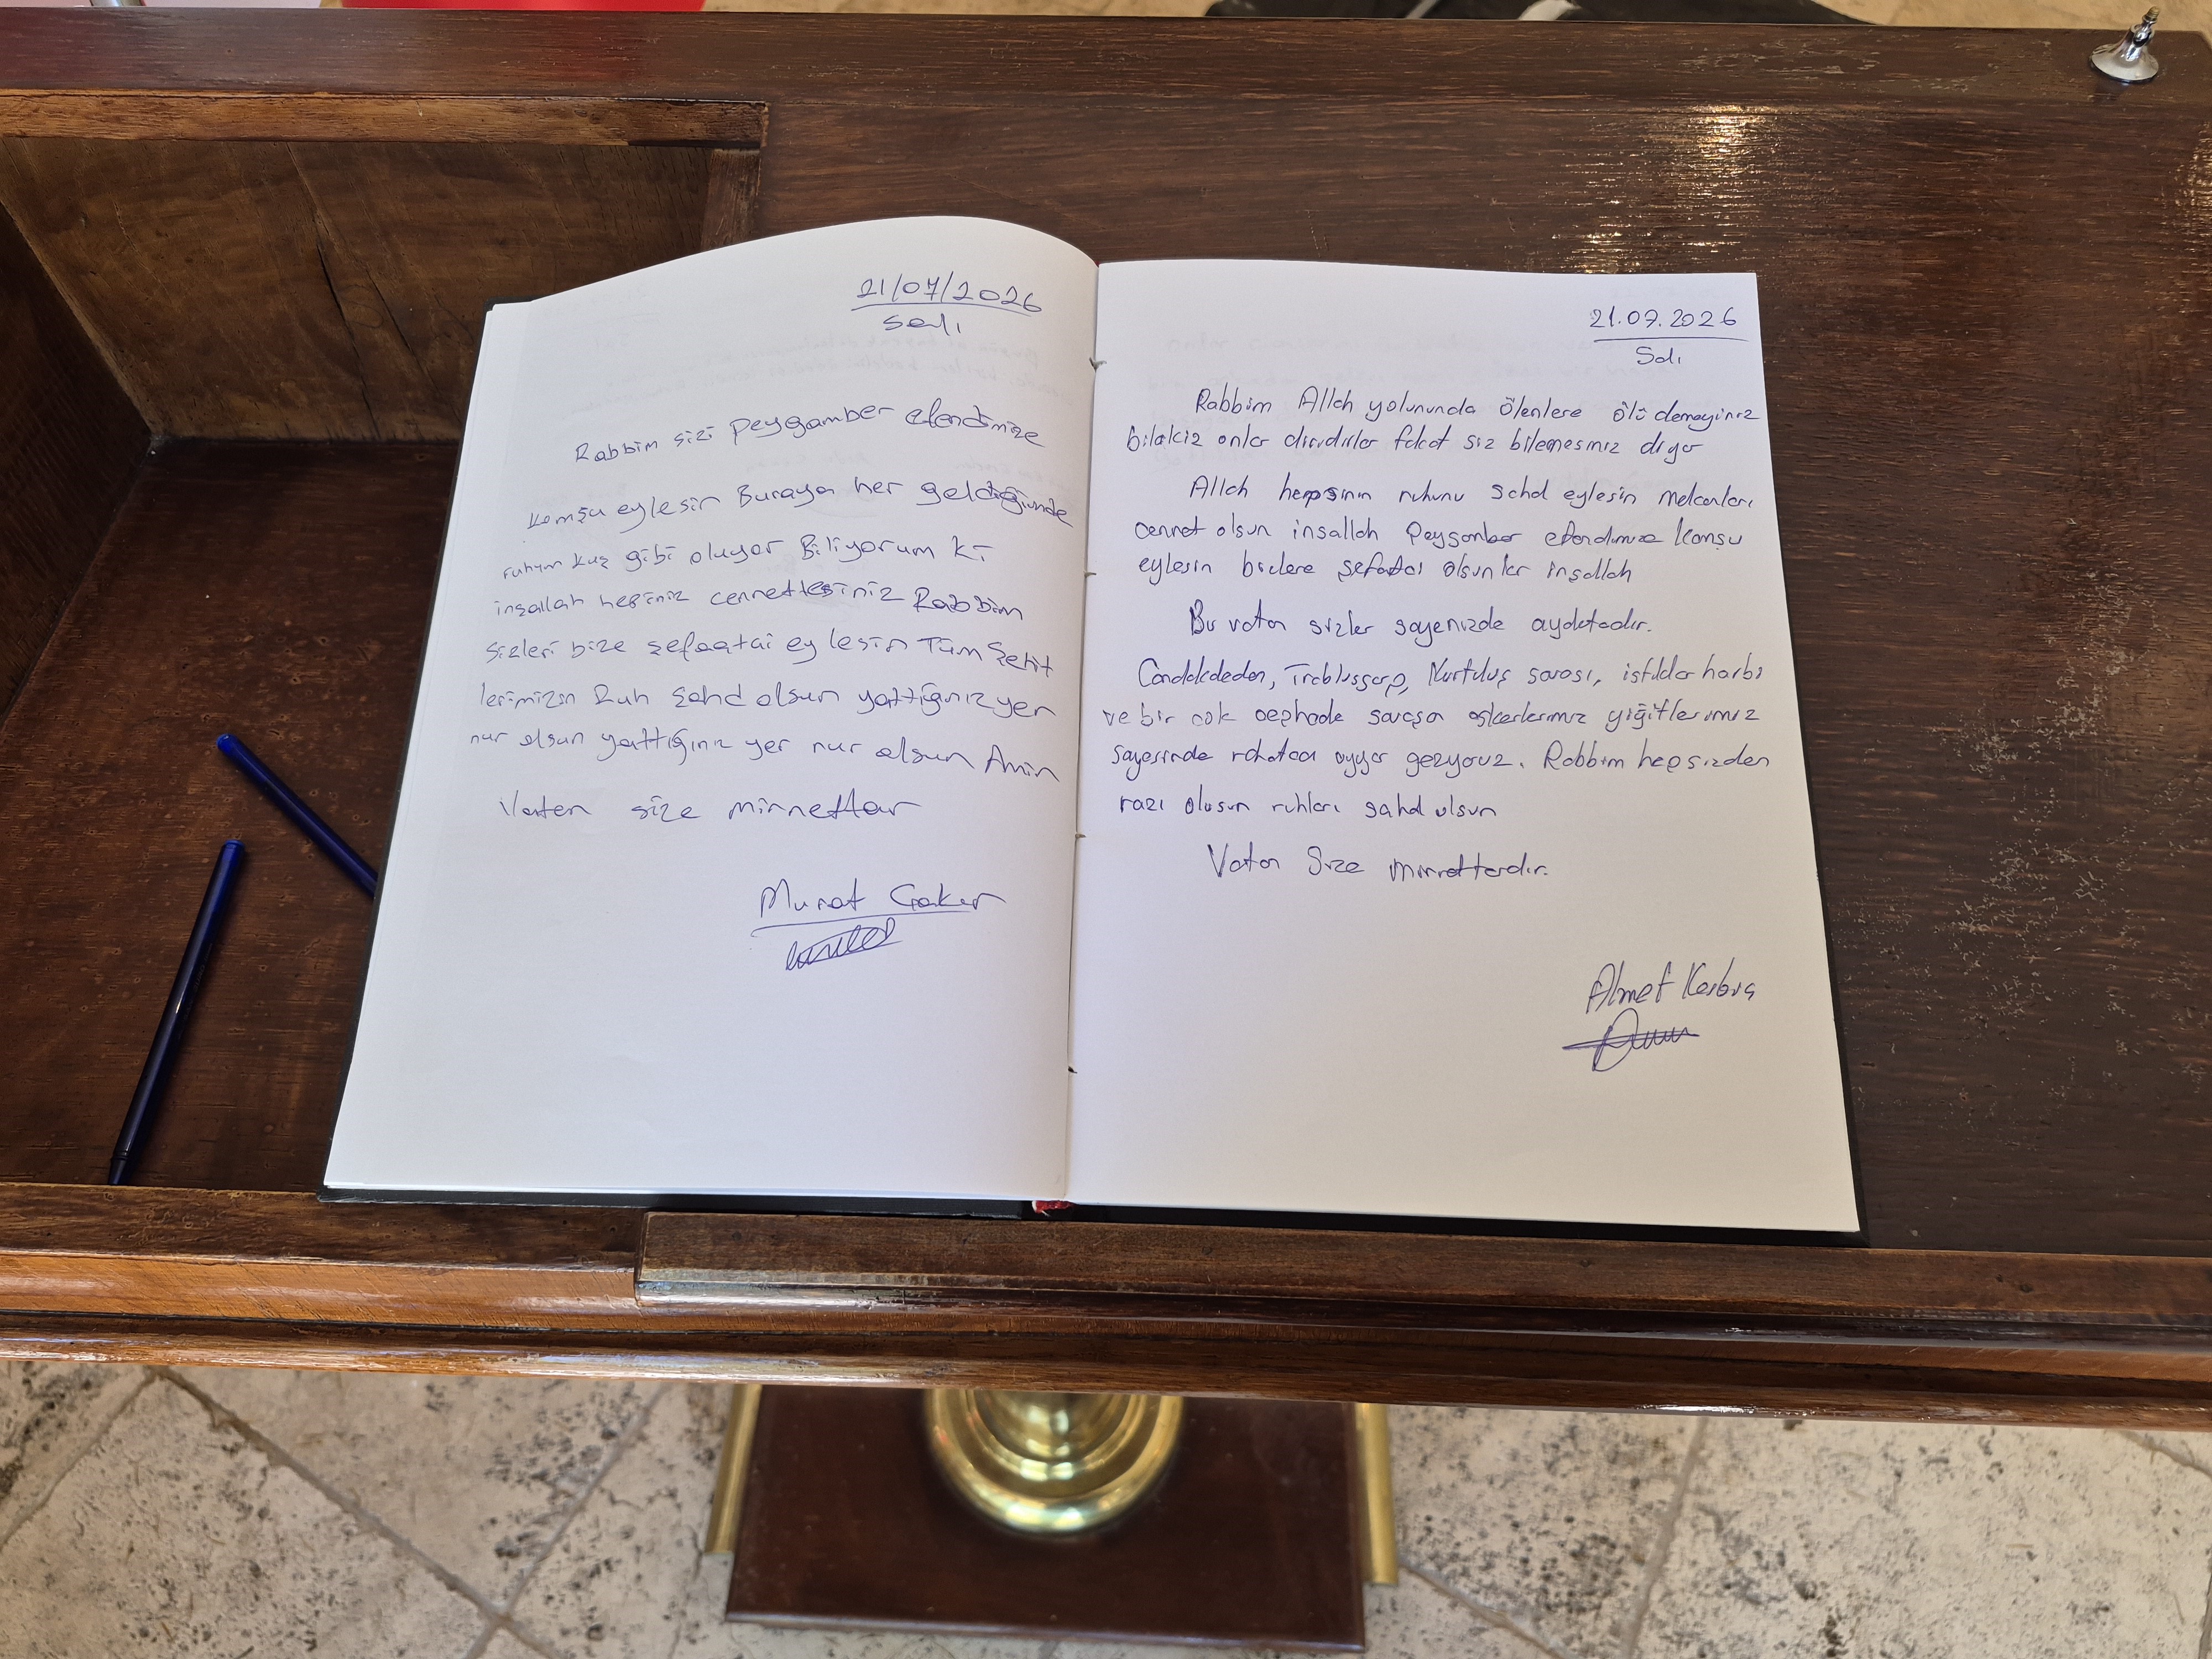 21/07/2026
Salı
Rabbim sizi Peygamber efendimize
komşu eylesin Buraya her geldiğimde
ruhum kuş gibi oluyor Biliyorum ki
inşallah hepiniz cennettesiniz Rabbim
sizleri bize şefaatci eylesin Tüm Şehit
lerimizin Ruh şahd olsun yattığınız yer
nur olsun yattığınız yer nur olsun Amin
Vatan size minnettar
Murat
21.07.2026
Salı
Rabbim Allah yolununda ölenlere ölü demeyiniz
bilakiz onlar diridirler fakat siz bilemesiniz diyor
Allah hepsinin ruhunu sahd eylesin mekanları
cennet olsun insallah Peygamber efendimize komsu
eylesin bizlere şefaatci olsunlar insallah
Bu vatan sizler sayenizde ayaktadır.
Canakkaleden, Trablusgarp, Kurtuluş savası, istiklar harbi
ve bir cok cephade savaşan askerlerimiz yiğitlerimiz
sayesinde rahatca uyuyor geziyouz. Rabbim hepsizden
razı olusun ruhları sahd olsun
Vatan Size minnettardır.
Ahmet